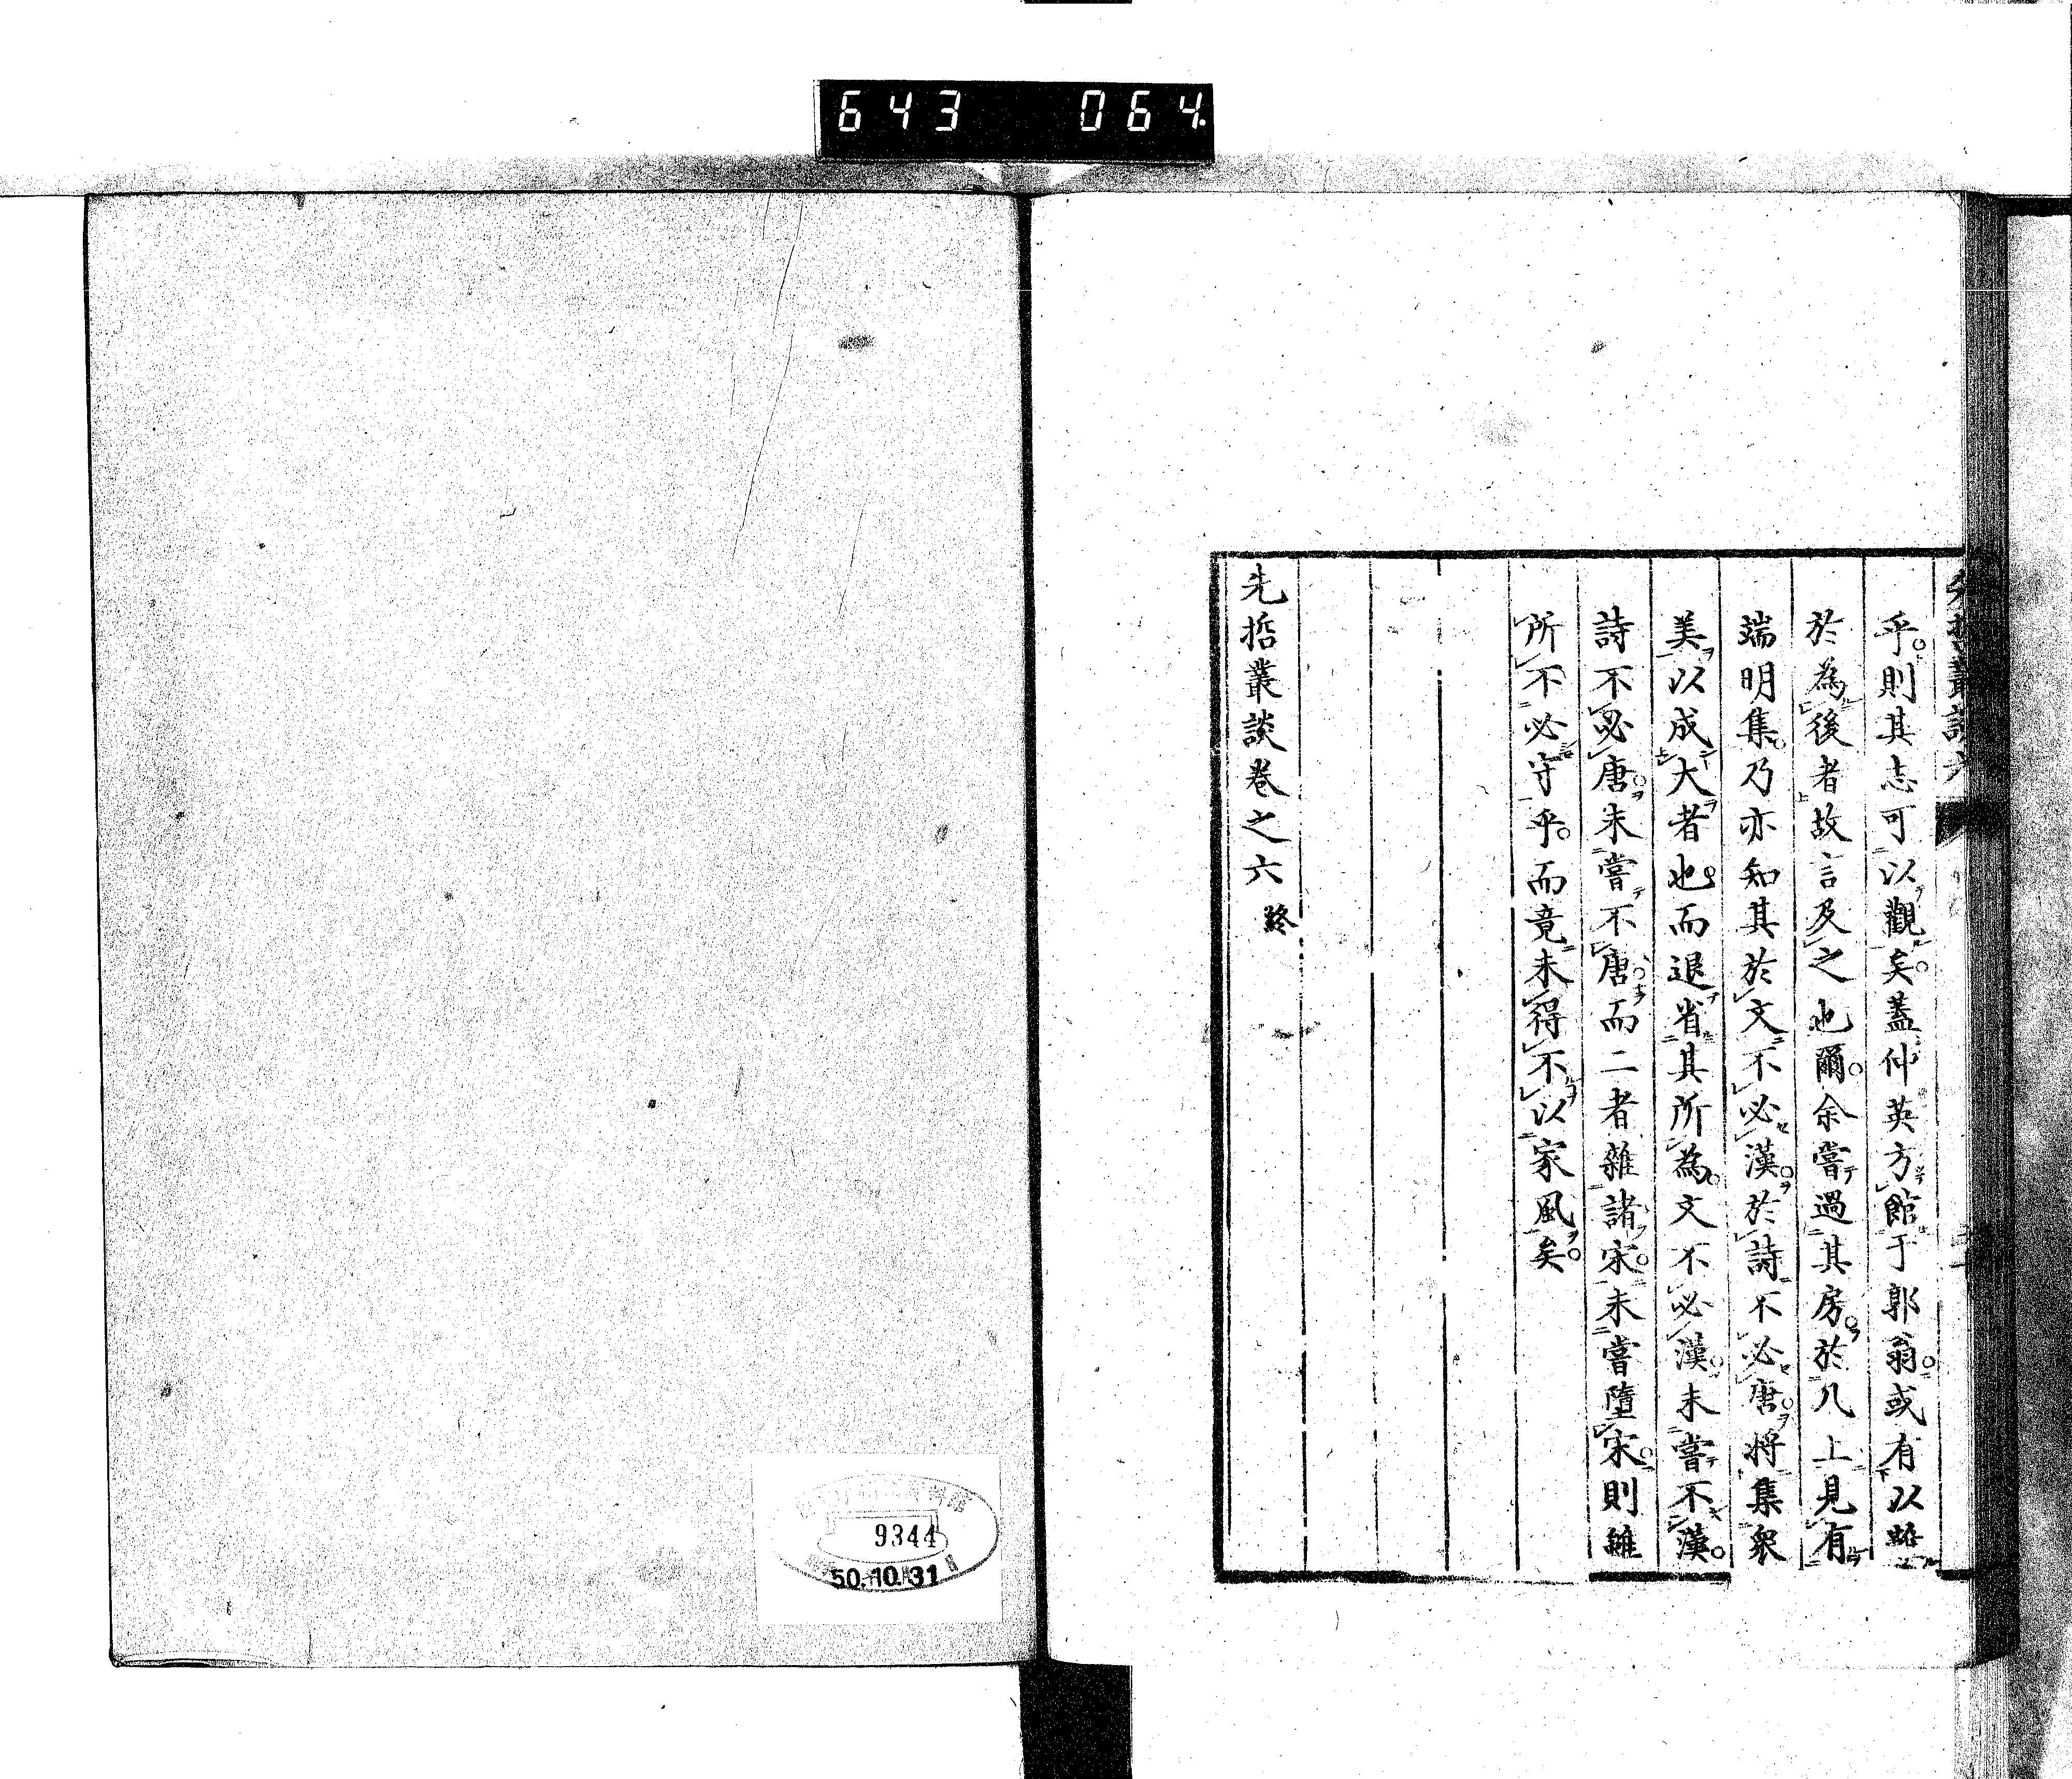 643 064
先哲叢談六
乎則其志可以觀矣蓋仲英方館于郭翁或有以
於為後者故言及之也爾余嘗過其房於几上見有
端明集乃亦知其於文不必漢於詩不必唐將集衆
美以成大者也而退省其所為文不必漢未嘗不漢
詩不必唐未嘗不唐而二者雜諸宋未嘗墮宋則雖
所不必守乎而竟未得不以家風矣
先哲叢談卷之六終
9344
50.10.31